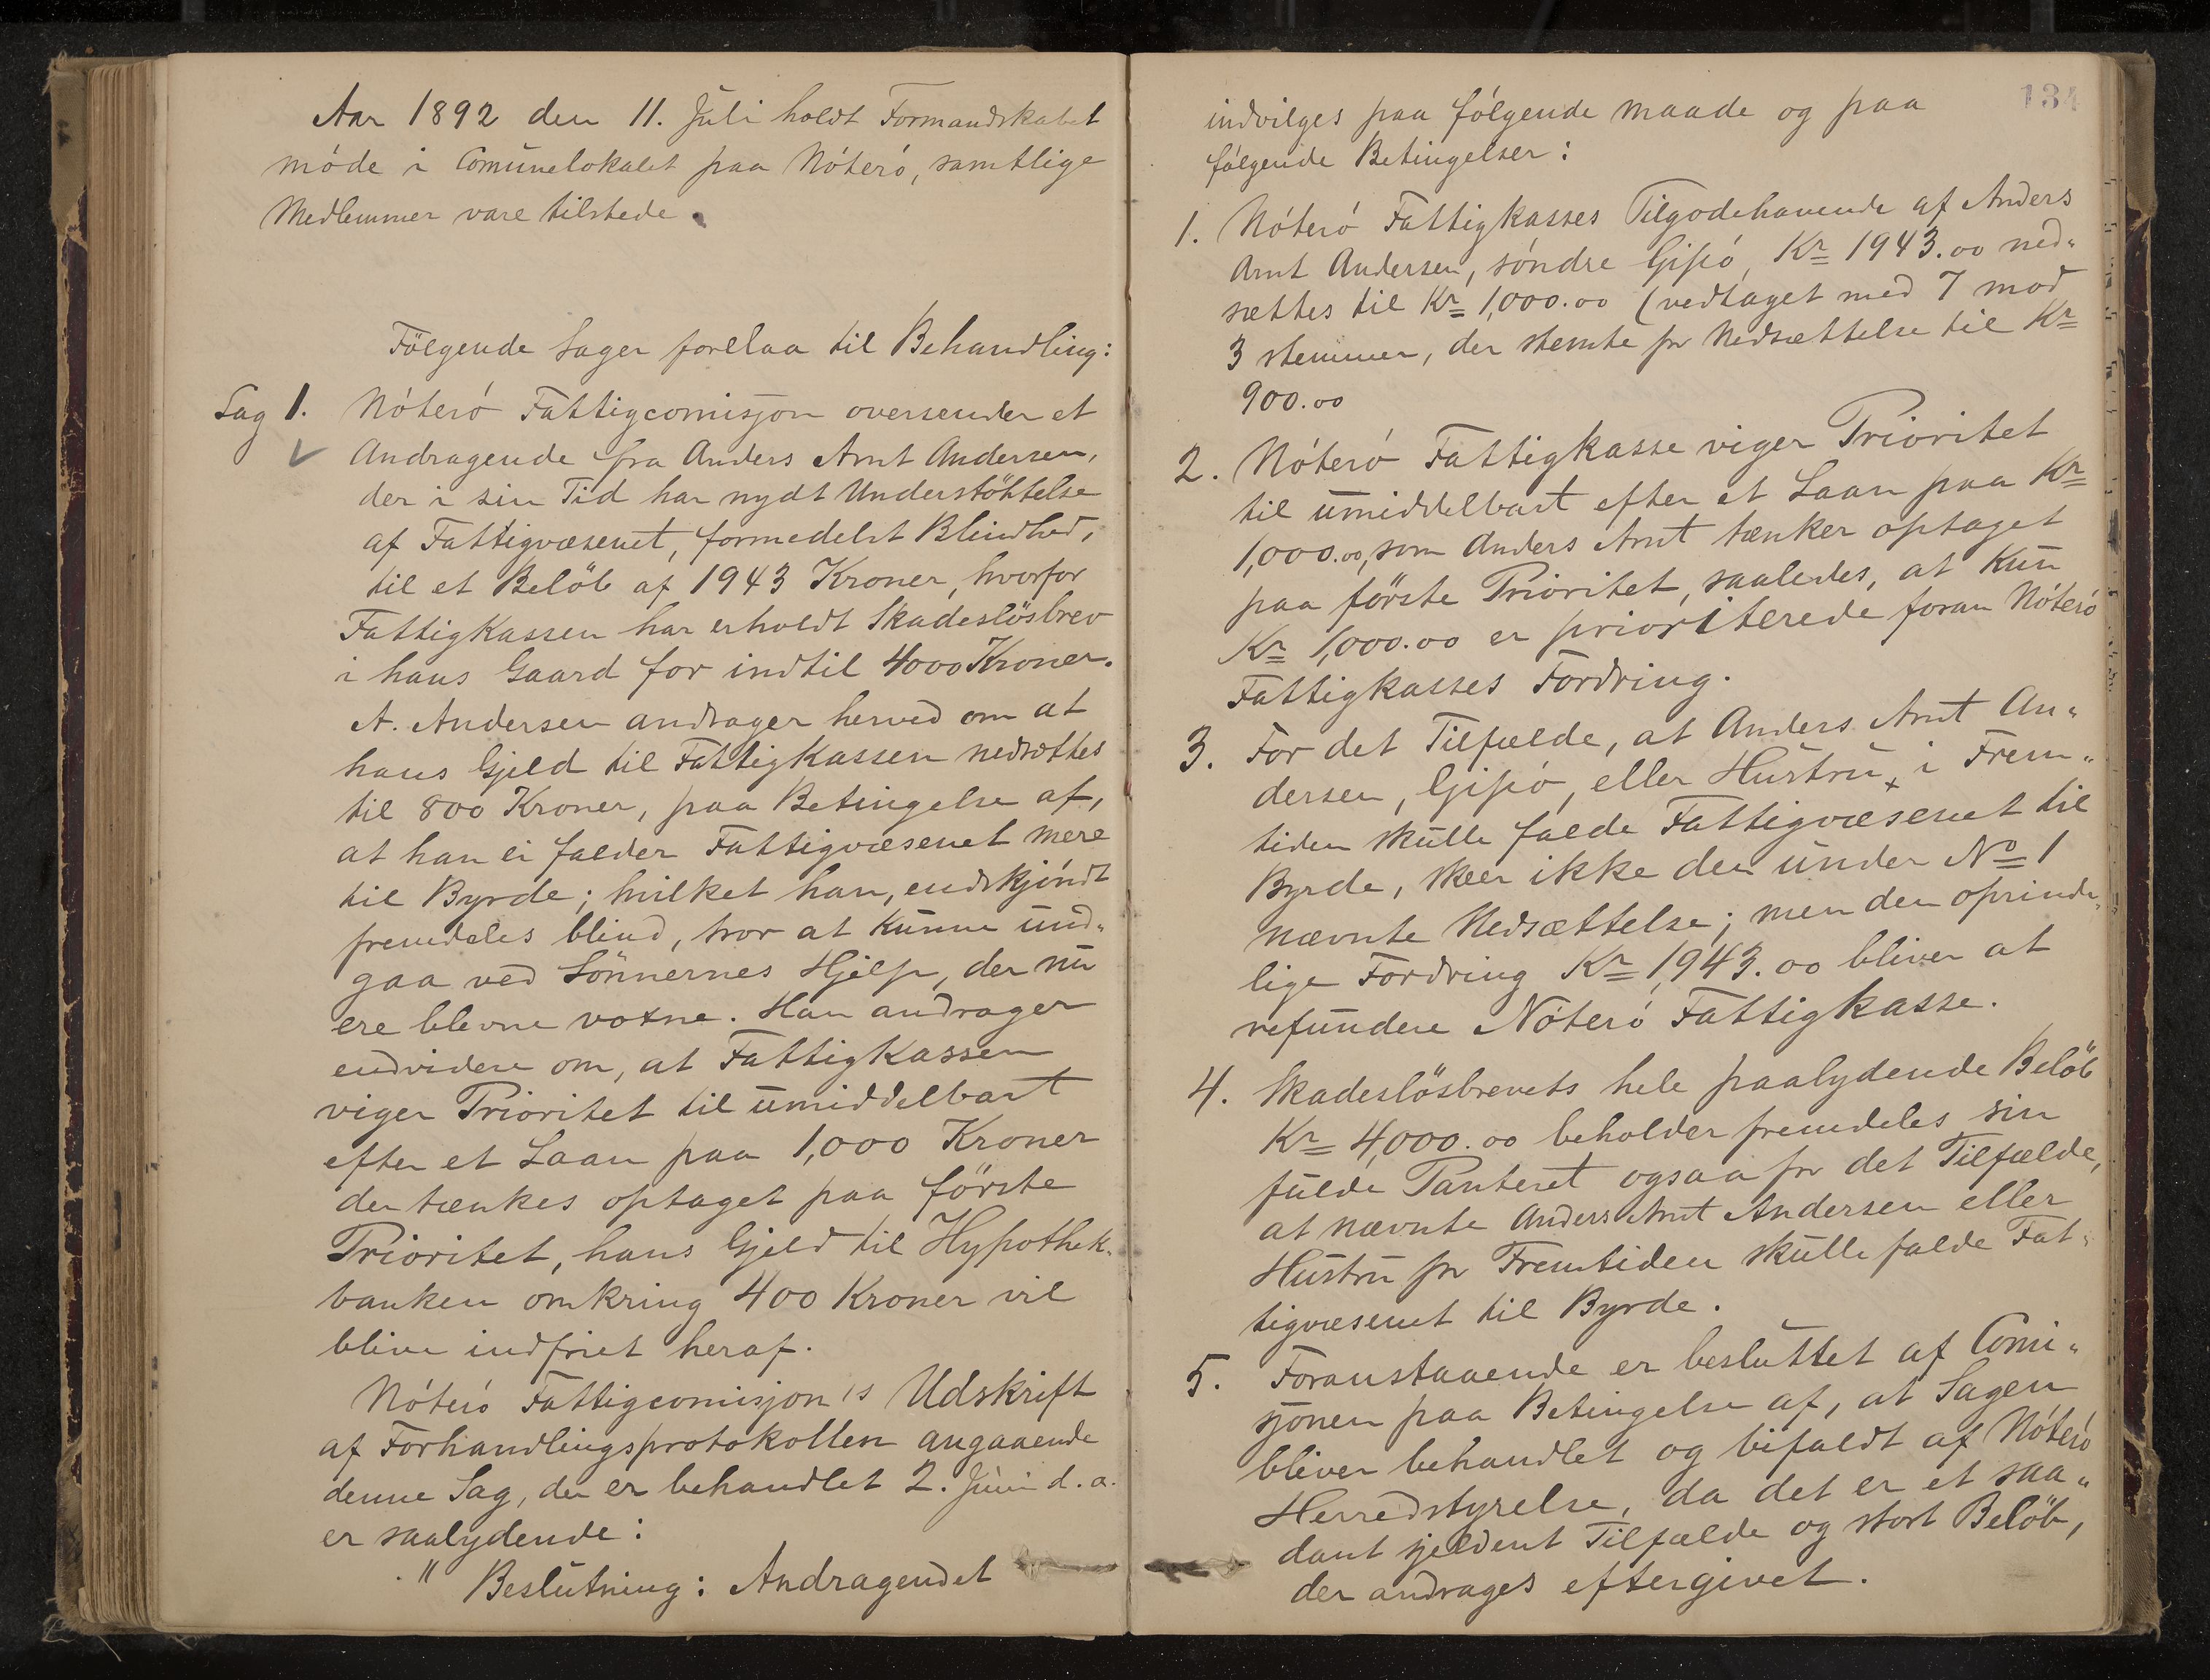 Aar 1892 den 11. Juli holdt Formandskabet
móde i Comunelokalet paa Nóteró, samtlige
Medlemmer vare tilstede.
Fölgende Sager forelaa til Behandling:
Sag 1. Nóteró Fattigcomisjon oversender et
Andragende fra Anders Arnt Andersen,
der i sin Tid har nydt Understöttelse
af Fattigvæsenet, formedelst Blindhed,
til et Belöb af 1943 Kroner, hvorfor
Fattigkassen har erholdt Skadeslösbrev
i hans Gaard for indtil 4000 Kroner.
A. Andersen andrager herved om at
hans Gjeld til Fattigkassen nedsættes
til 800 Kroner, paa Betingelse af,
at han ei falder Fattigvæsenet mere
til Byrde; hvilket han, endskjóndt
fremdeles blind, tror at kunne und„
gaa ved Sönnernes Hjelp, der nu
ere blevne voxne. Han andrager
endvidere om, at Fattigkassen
viger Prioritet til umiddelbart
efter et Laan paa 1,000 Kroner
der tænkes optaget paa förste
Prioritet, hans Gjeld til Hypothek„
banken omkring 400 Kroner vil
blive indfriet heraf.
Nóteró Fattigcomisjon's Udskrift
af Forhandlingsprotokollen angaaende
denne Sag, der er behandlet 2. Juni d. a.
er saalydende:
" Beslutning: Andragendet
134
indvilges paa fólgende Maade og paa
fólgende Betingelser:
1. Nóteró Fattigkasses Tilgodehavende af Anders
Arnt Andersen, sóndre Gipó, Kr 1943.00 ned„
sættes til Kr 1,000.00 (vedtaget med 7 mod
3 stemmer, der stemte for Nedsættelse til Kr
900.00
2. Nóteró Fattigkasse viger Prioritet
til umiddelbart efter et Laan paa Kr
1,000.00, som Anders Arnt tænker optaget
paa förste Prioritet, saaledes, at kun
Kr 1,000.00 er prioriterede foran Nóteró
Fattigkasses Fordring.
3. For det Tilfælde, at Anders Arnt An„
dersen, Gipó, eller Hustru, i Frem„
tiden skulle falde Fattigvæsenet til
Byrde, skeer ikke den under No 1
nævnte Nedsættelse; men den oprinde„
lige Fordring Kr 1,943.00 bliver at
refundere Nóteró Fattigkasse.
4. Skadeslösbrevets hele paalydende Belöb
Kr 4,000.00 beholder fremdeles sin
fulde Panteret ogsaa for det Tilfælde,
at nævnte Anders Arnt Andersen eller
Hustru for Fremtiden skulle falde Fat„
tigvæsenet til Byrde.
5. Foranstaaende er besluttet af Comi„
sjonen paa Betingelse af, at Sagen
bliver behandlet og bifaldt af Nóteró
Herredstyrelse, da det er et saa„
dant sjeldent Tilfælde og stort Belöb,
der andrages eftergivet.